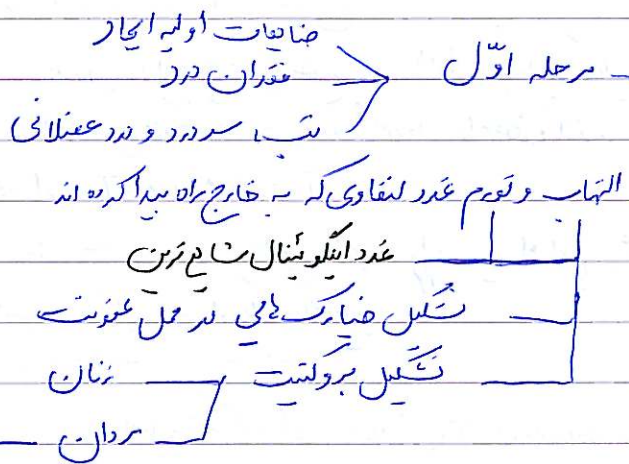 ضایعات اولیه ایجاد
- مرحله اوّل
فقدان درد
تب، سردرد و درد عضلانی
التهاب و تورم غدد لنفاوی که به خارج راه پیدا کرده اند
غدد اینگوئینال شایع ترین
تشکیل خیارک هایی در محل عفونت
تشکیل پروکتیت
زنان
مردان